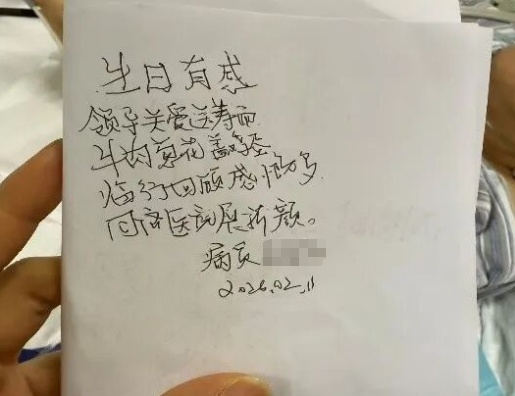 生日有感
领导关爱送寿面
牛肉葱花盖
临行回顾感恨多
回医院展新颜。
病员
2026.02.11